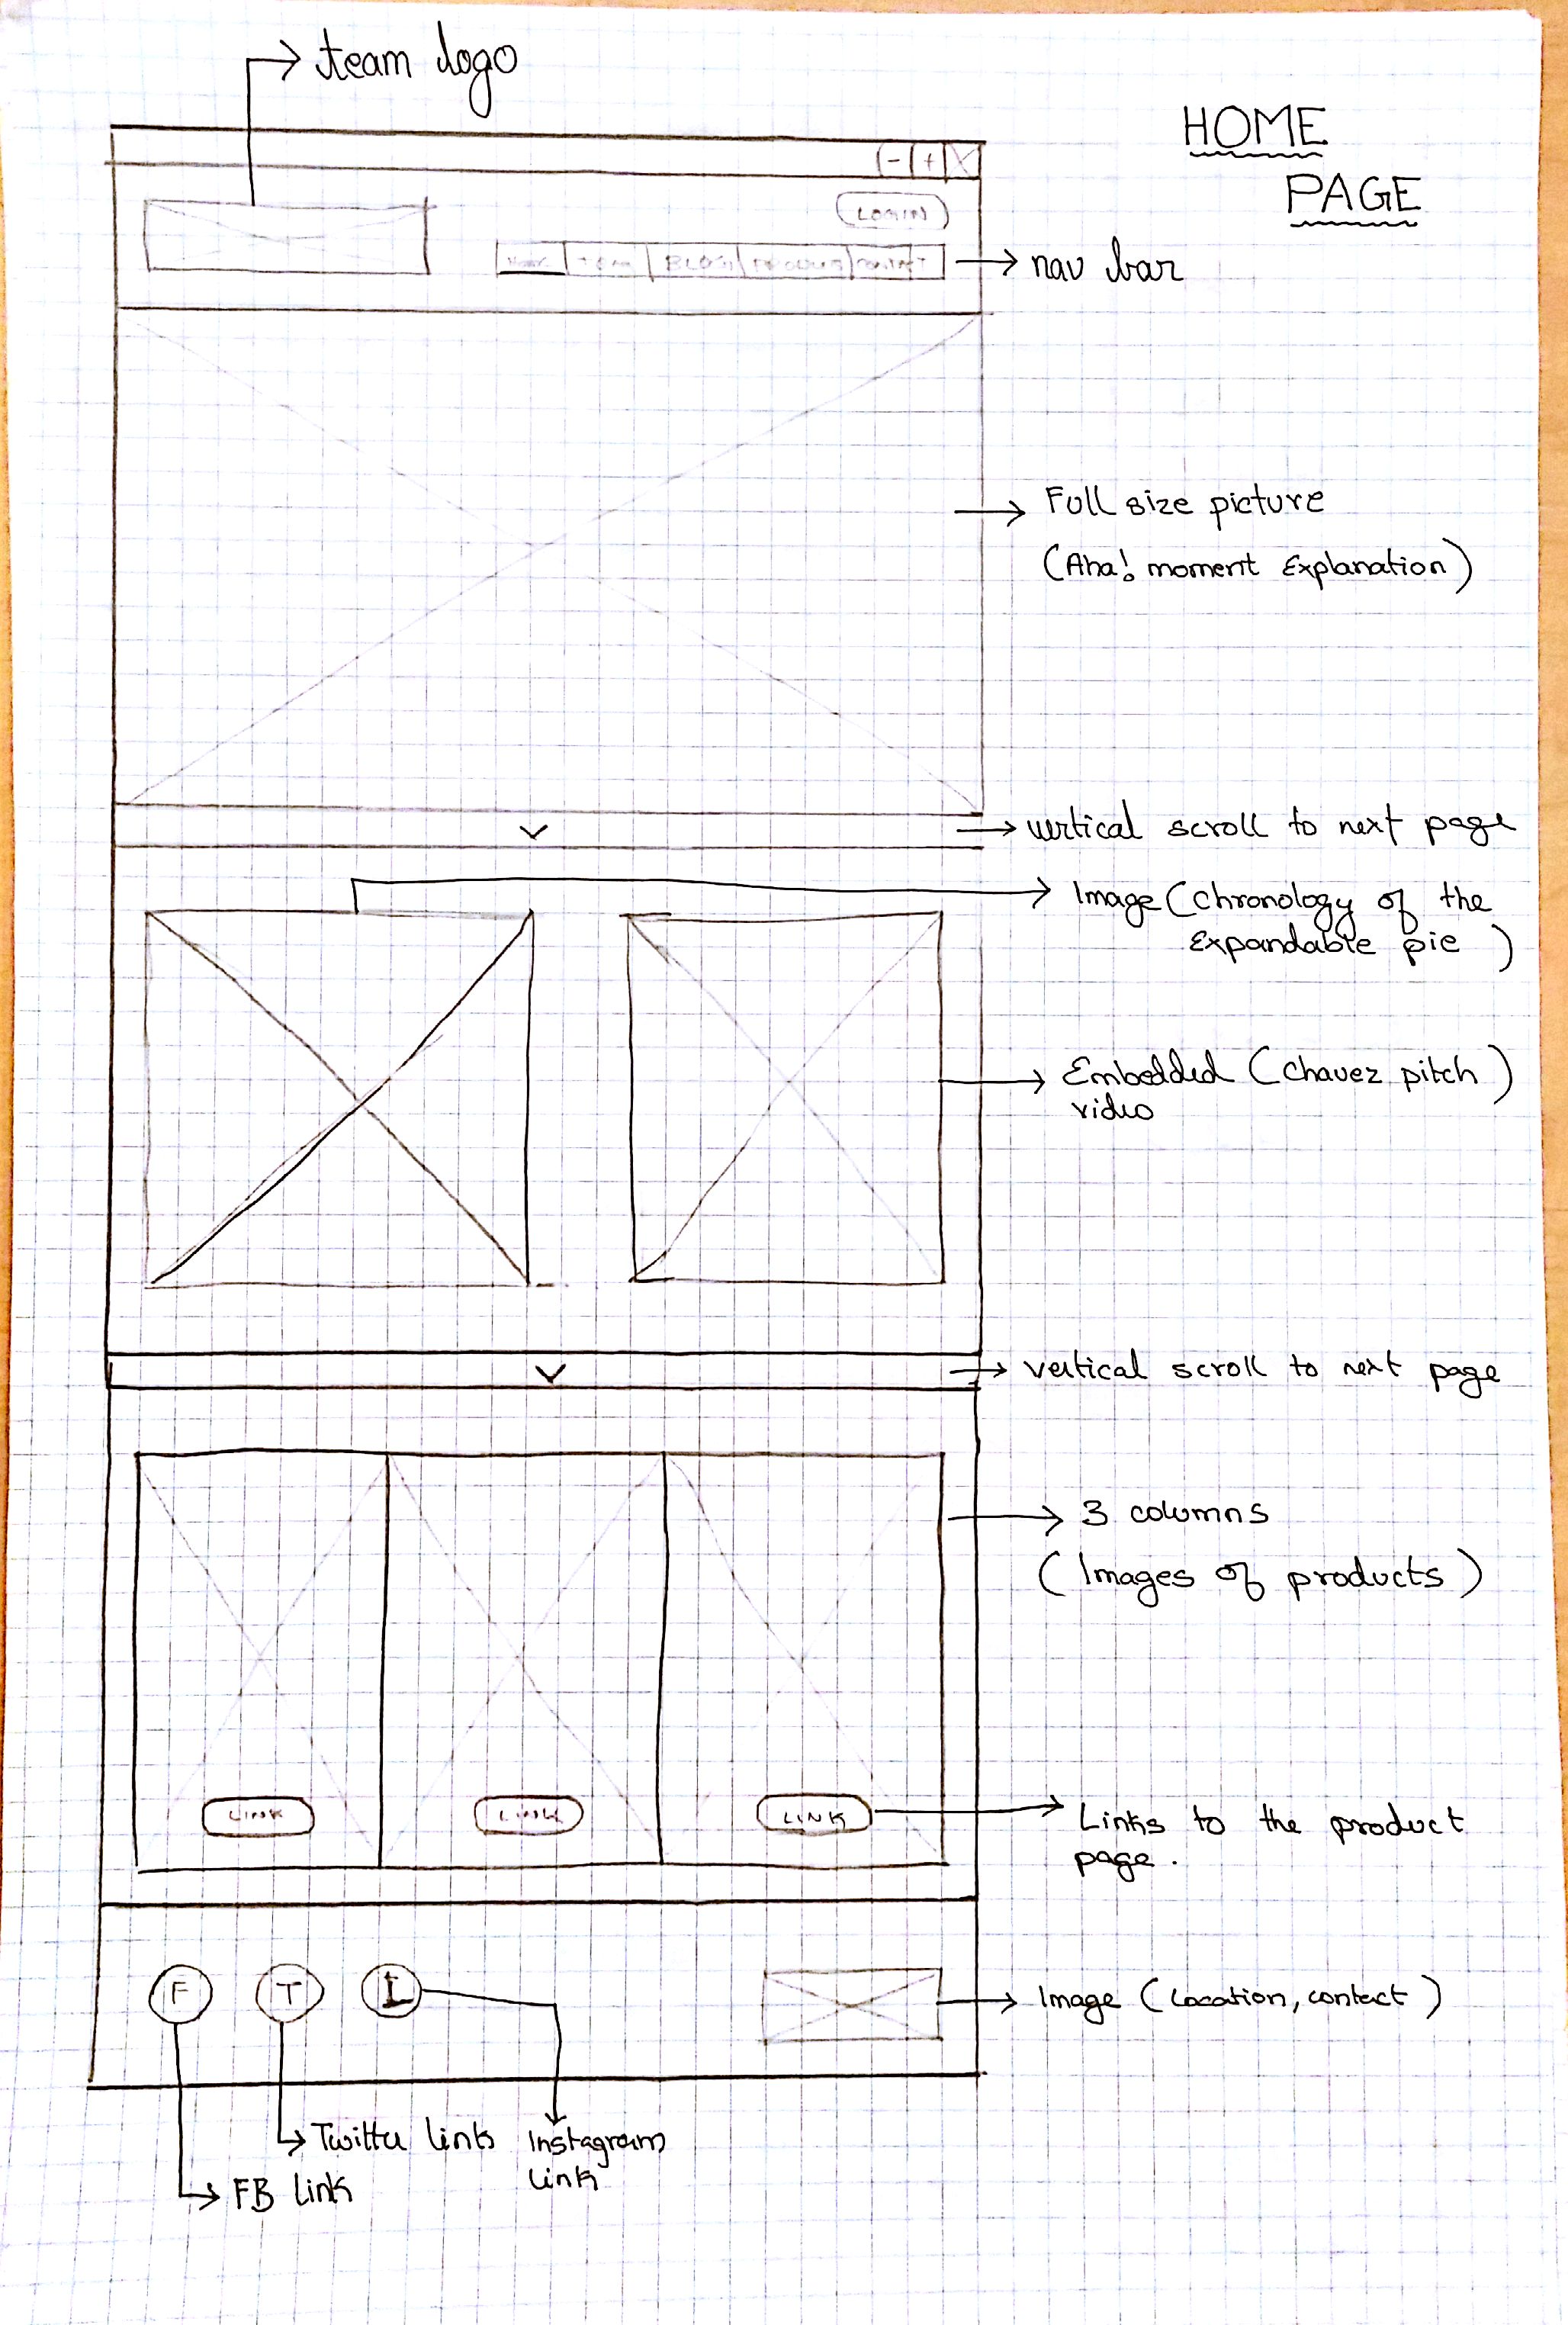 team logo
HOME
PAGE
- + X
LOGIN
HOME TEAM BLOG PRODUCTS CONTACT
nav bar
Full size picture
(Aha! moment Explanation)
vertical scroll to next page
Image (chronology of the
Expandable pie )
Embedded (chavez pitch)
video
vertical scroll to next page
3 columns
( Images of products )
LINK LINK LINK
Links to the product
page.
F T I
Image ( Location, contact )
Twitter link
Instagram
link
FB link